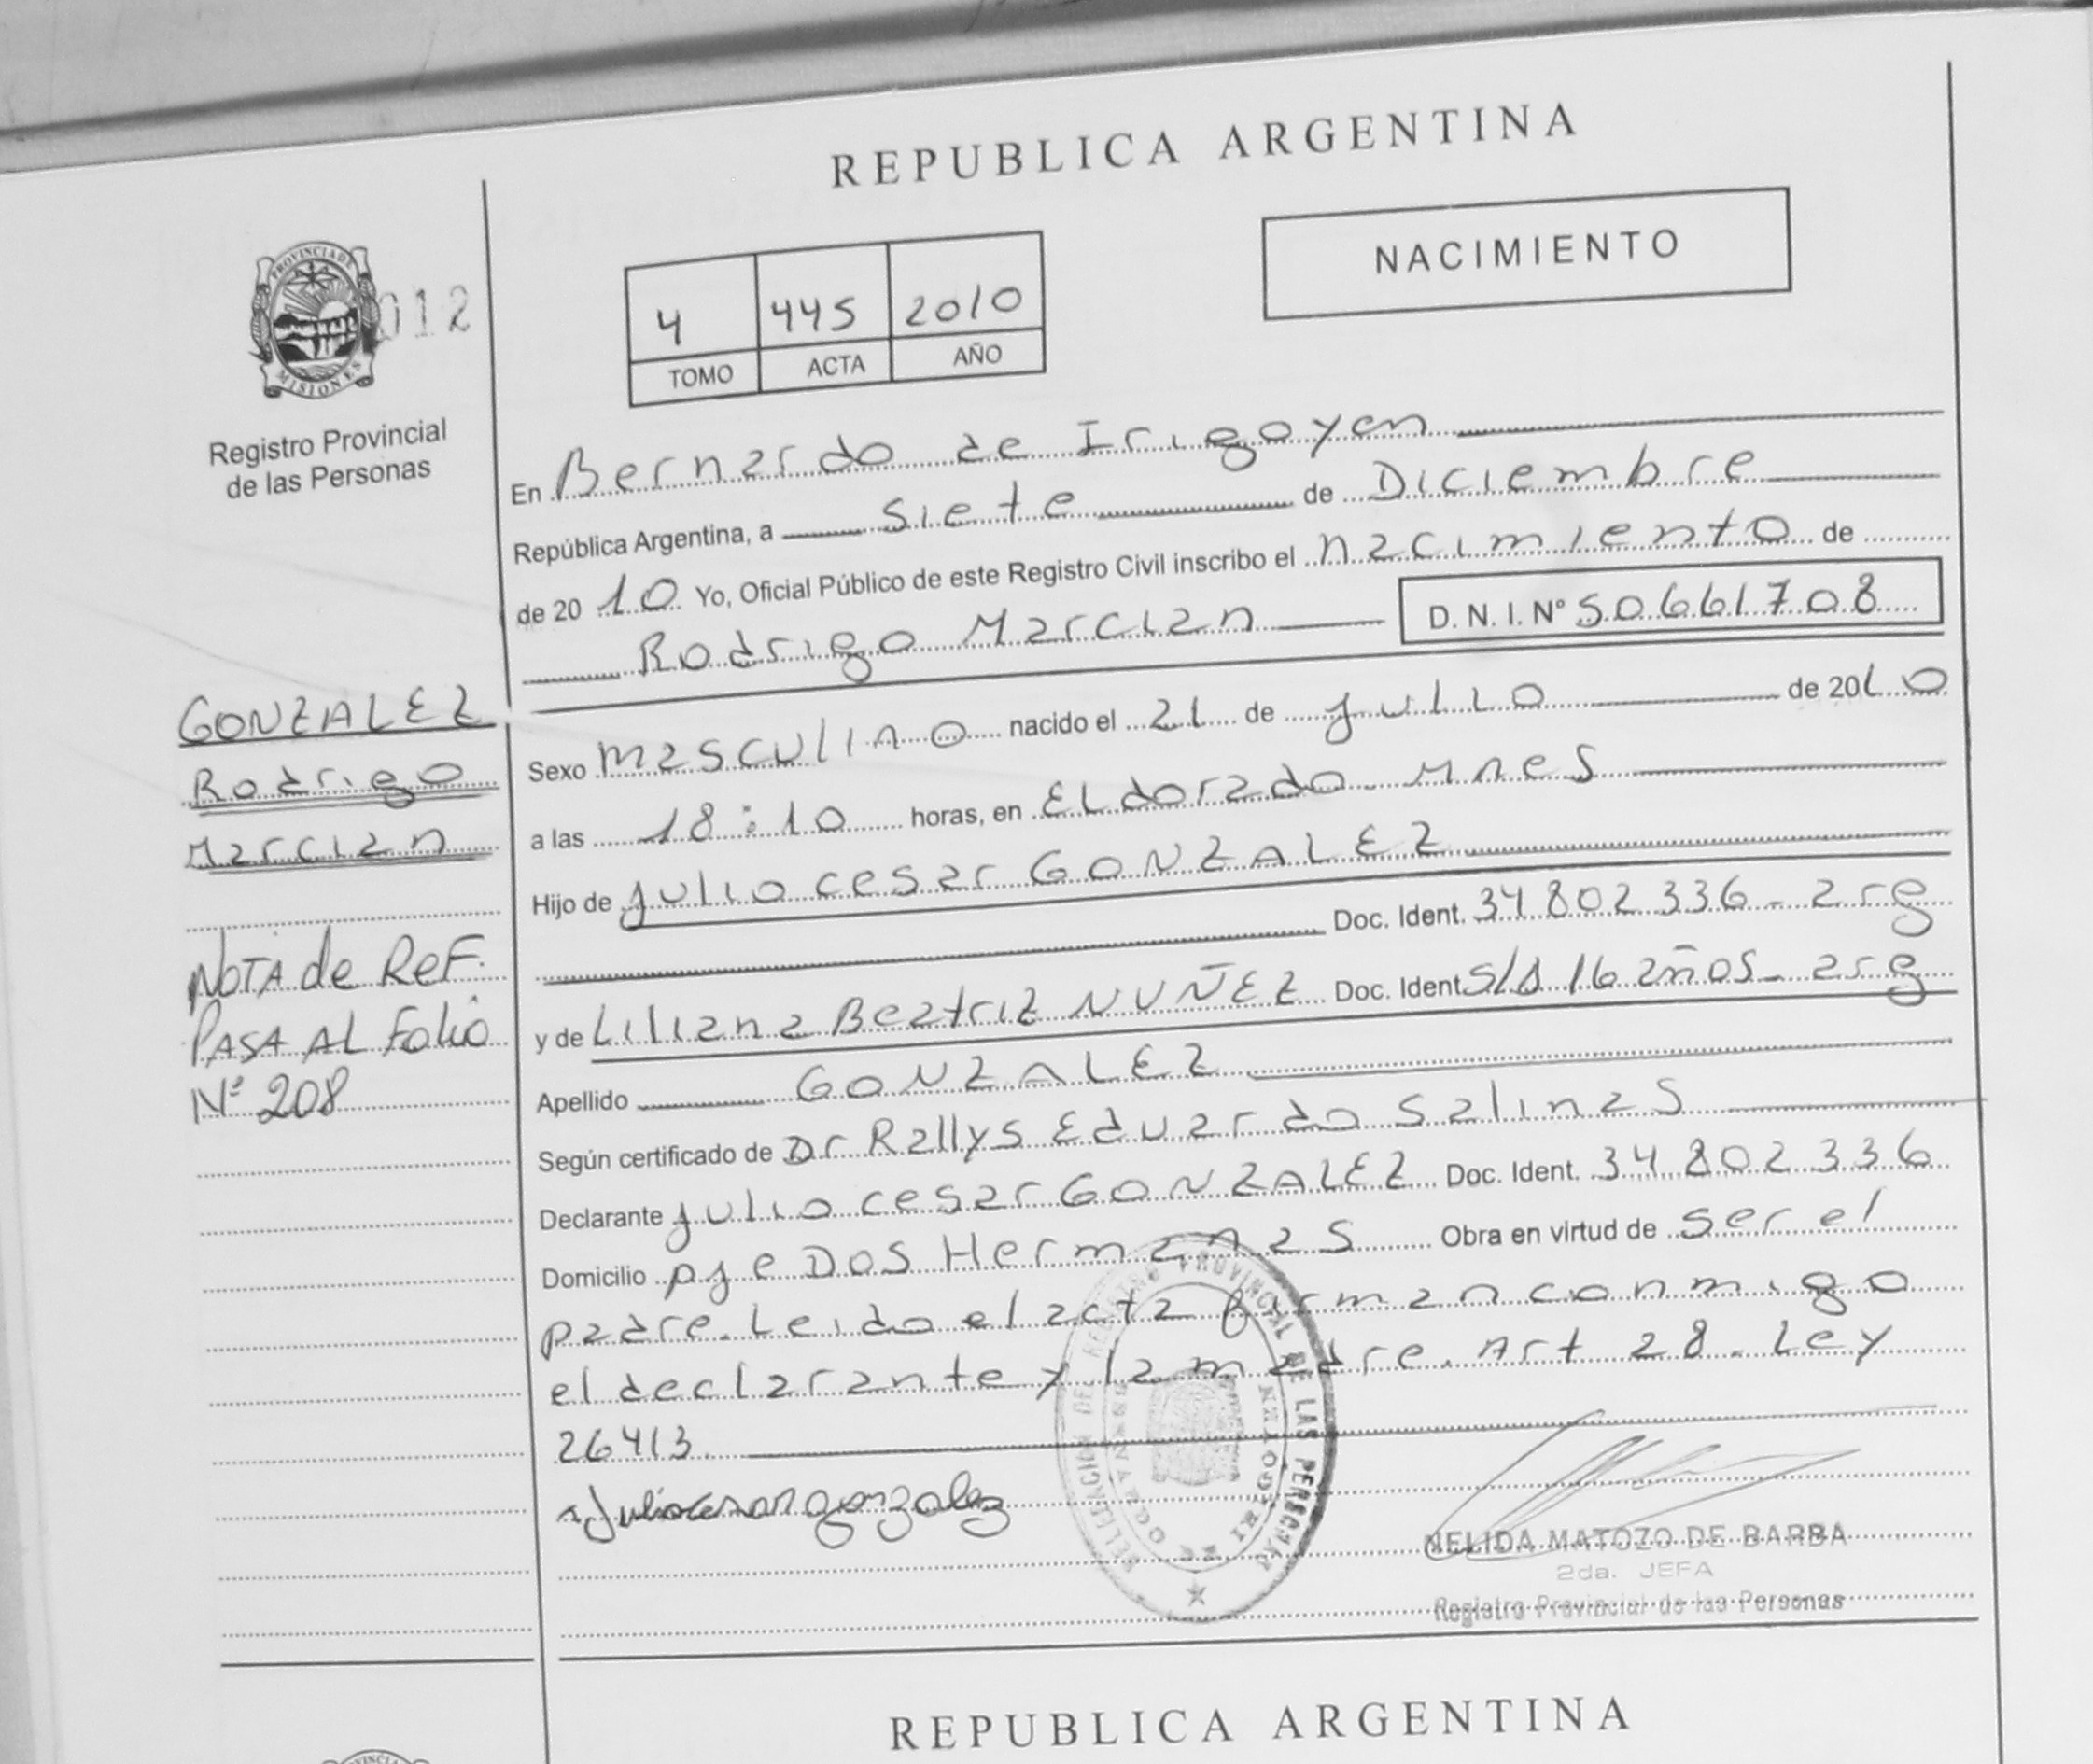 REPUBLICA ARGENTINA
NACIMIENTO
PROVINCIA DE
MISIONES
012
4 445 2010
TOMO ACTA AÑO
Registro Provincial
de las Personas
En Bernardo de Irigoyen
República Argentina, a siete de Diciembre
de 20 10 Yo, Oficial Público de este Registro Civil inscribo el nacimiento de
Rodrigo Marcian D. N. I. Nº 50661708
GONZALEZ
Rodrigo
Marcian
NOTA de REF.
PASA AL Folio
Nº 208
Sexo masculino nacido el 21 de julio de 2010
a las 18:10 horas, en Eldorado - Mnes
Hijo de julio cesar GONZALEZ
Doc. Ident. 34802336 - arg
y de Liliana Beatriz NUÑEZ Doc. Ident S/D 16 años - arg
Apellido GONZALEZ
Según certificado de Dr Rallys Eduardo Salinas
Declarante julio cesar GONZALEZ Doc. Ident. 34 802 336
Domicilio pje Dos Hermanas Obra en virtud de ser el
padre. Leido el acta firman conmigo
el declarante y la madre. Art 28. Ley
26413.
Julio cesar gonzalez
DELEGACION DEL REGISTRO PROVINCIAL DE LAS PERSONAS
NELIDA MATOZO DE BARBA
2da. JEFA
Registro Provincial de las Personas
REPUBLICA ARGENTINA